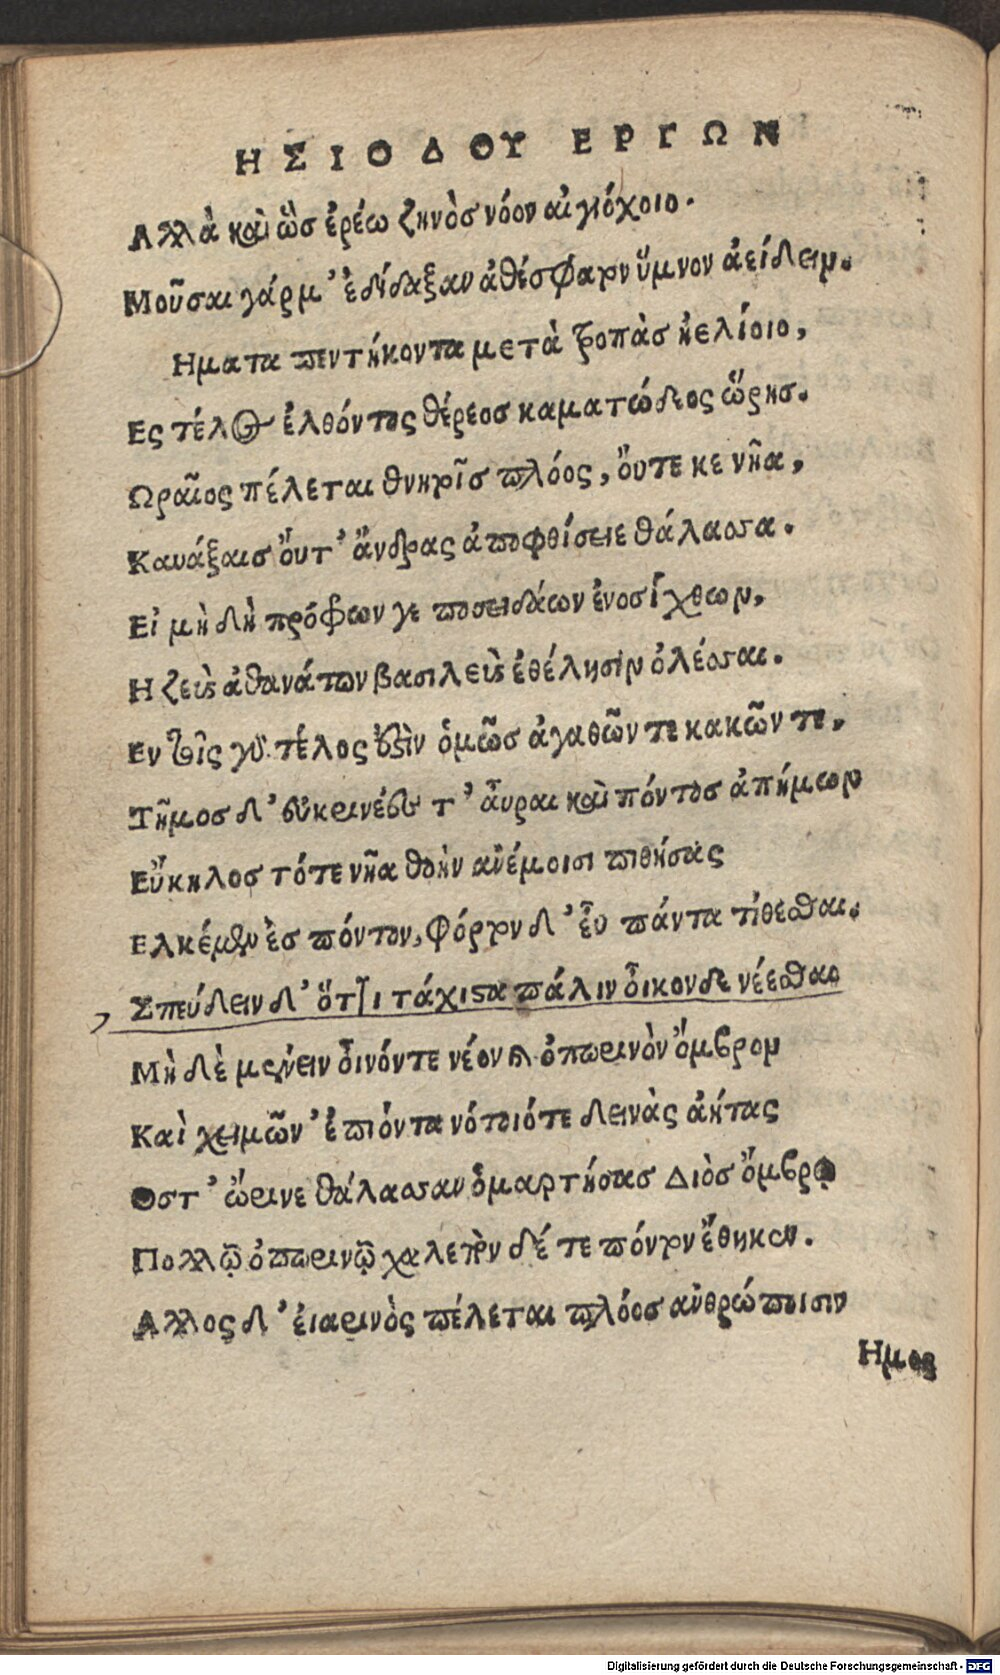 ΗΣΙΟΔΟΥ ΕΡΓΩΝ
Αλλὰ καὶ ὣσ ἐρέω ζηνὸσ νόον αἰγιόχοιο.
Μοῦσαι γάρ μ’ ἐδίδαξαν ἀθέσφατον ὕμνον ἀείδειν.
Ηματα πεντήκοντα μετὰ τροπὰσ ἠελίοιο,
Ες τέλος ἐλθόντος θέρεοσ καματώδεος ὥρησ.
Ωραῖος πέλεται θνητοῖσ πλόος, ὄυτε κε νῆα,
Καυάξαισ ὄυτ’ ἄνδρας ἀποφθίσειε θάλασσα.
Εἰ μὴ δὴ πρόφρων γε ποσειδάων ἐνοσίχθων,
Η ζεὺς ἀθανάτων βασιλεὺς ἐθέλησιν ὀλέσσαι.
Εν τοῖς γὰρ τέλος ἐστὶν ὁμῶσ ἀγαθῶν τε κακῶν τε,
Τῆμοσ δ’ εὐκρινέες τ’ ἆυραι καὶ πόντοσ ἀπήμων
Εὔκηλοσ τότε νῆα θοὴν ἀνέμοισι πιθήσας
Ελκέμεν ἐσ πόντον, φόρτον δ’ ἐῦ πάντα τίθεσθαι.
Σπεύδειν δ’ ὅττι τάχιστα πάλιν ὀῖκονδε νέεσθαι
Μὴ δὲ μένειν ὀῖνόντε νέον καὶ ὀπωρινὸν ὄμβρον
Καὶ χειμῶν’ ἐπιόντα νότοιότε δεινὰς ἀήτας
Οστ’ ὤρινε θάλασσαν ὁμαρτήσασ Διὸσ ὄμβρῳ
Πολλῷ ὀπωρινῷ χαλεπὸν δέ τε πόντον ἔθηκεν.
Αλλος δ’ ἐιαρινὸς πέλεται πλόοσ ἀνθρώποισιν
Ημος
Digitalisierung gefördert durch die Deutsche Forschungsgemeinschaft - DFG